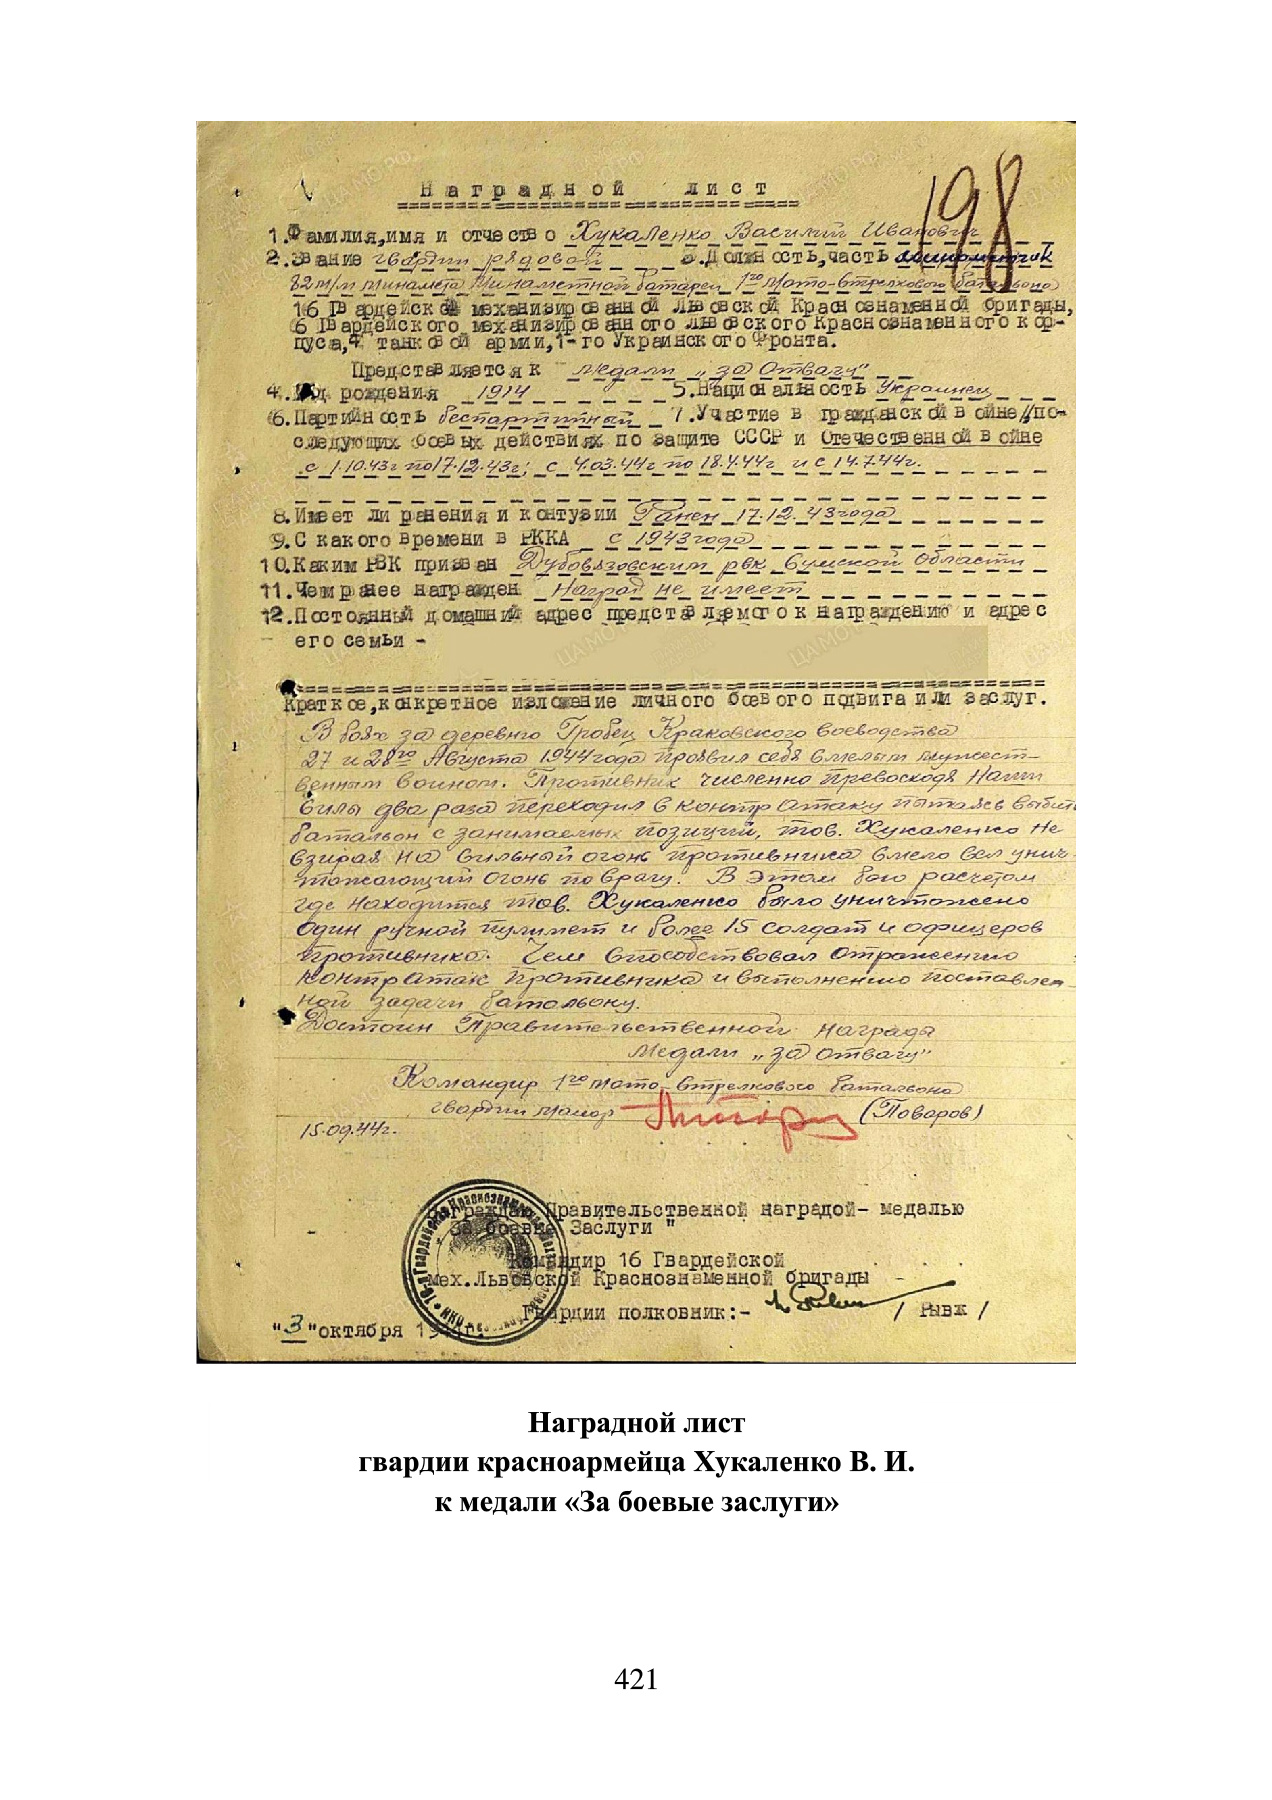 198
Наградной лист
1. Фамилия, имя и отчество Хукаленко Василий Иванович
2. Звание гвардии рядовой 3. Должность, часть минометчик
82 м/м минамета Минаметной батареи 1го Мото-стрелкового батальона
16 Гвардейской механизированной Львовской Краснознаменной бригады,
6 Гвардейского механизированного Львовского Краснознаменного кор-
пуса, 4 танковой армии, 1-го Украинского Фронта.
Представляется к медали „за Отвагу"
4. Год рождения 1914 5. Национальность Украинец
6. Партийность беспартийный 7. Участие в гражданской войне, по-
следующих боевых действиях по защите СССР и Отечественной войне
с 1.10.43г по 17.12.43г; с 4.03.44г по 18.4.44г и с 14.7.44г.
8. Имеет ли ранения и контузии Ранен 17.12.43 года
9. С какого времени в РККА с 1943 года
10. Каким РВК призван Дубовязовским рвк Сумской области
11. Чем ранее награжден Наград не имеет
12. Постоянный домашний адрес представляемого к награждению и адрес
его семьи -
Краткое, конкретное изложение личного боевого подвига или заслуг.
В боях за деревню Гробец Краковского воеводства
27 и 28го Августа 1944 года проявил себя смелым мужест-
венным воином. Противник численно превосходя Наши
силы два раза переходил в контратаку пытаясь выбить
батальон с занимаемых позиций, тов. Хукаленко не
взирая на сильный огонь противника смело вел унич-
тожающий огонь по врагу. В этом бою расчетом
где находится тов. Хукаленко было уничтожено
один ручной пулимет и более 15 солдат и офицеров
противника. Чем способствовал отражению
контратак противника и выполнению поставлен
ной задачи батальону.
Достоин Правительственной награды
медали „за отвагу"
Командир 1го мото-стрелкового батальона
гвардии майор (Поваров)
15.09.44г.
Награжден Правительственной наградой- медалью
"За боевые Заслуги"
Командир 16 Гвардейской
мех.Львовской Краснознаменной бригады
Гвардии полковник:- / Рывж /
"3" октября 1944г.
Наградной лист
гвардии красноармейца Хукаленко В. И.
к медали «За боевые заслуги»
421